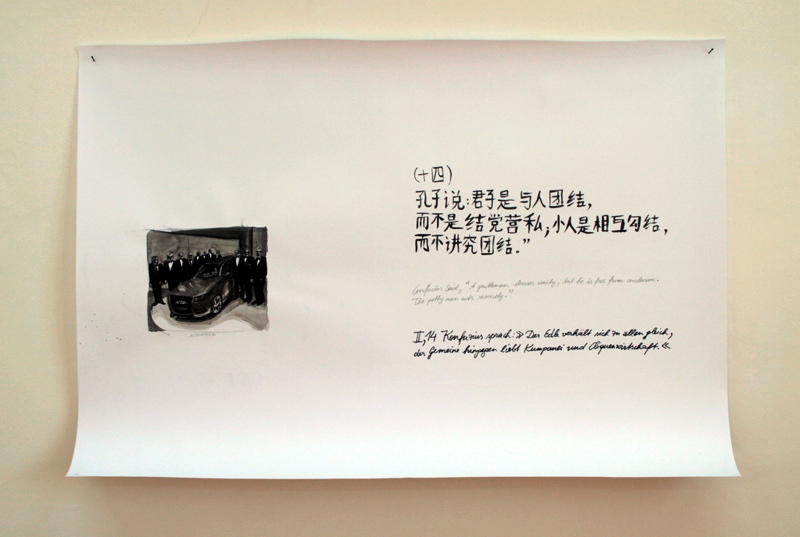 (十四)
孔子说:君子是与人团结,
而不是结党营私;小人是相互勾结,
而不讲究团结.”
Confucius said, “A gentleman desires unity, but he is free from
“The petty man acts
II,14 Konfuzius sprach: » Der Edle verhält sich zu allen gleich,
der Gemeine hingegen liebt Kumpanei und Cliquenwirtschaft. «